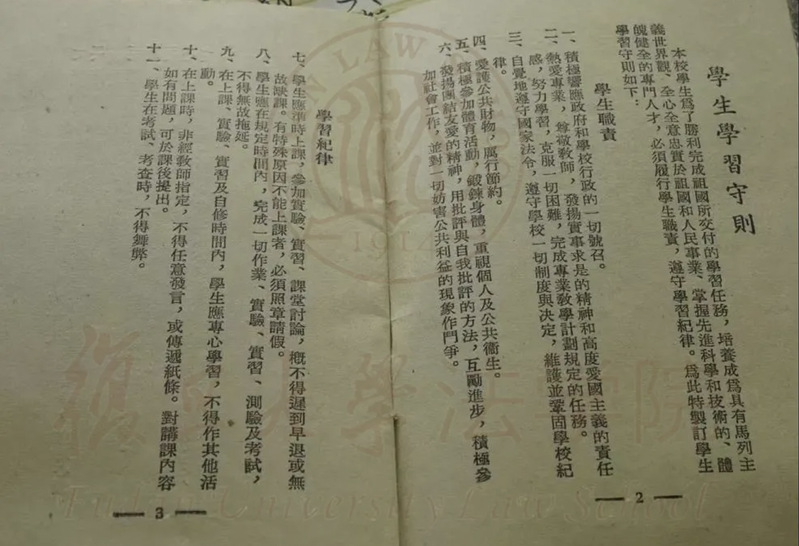 學生學習守則
本校學生為了勝利完成祖國所交付的學習任務,培養成為具有馬列主
義世界觀、全心全意忠實於祖國和人民事業、掌握先進科學和技術的、體
魄健全的專門人才,必須履行學生職責,遵守學習紀律。為此特製訂學生
學習守則如下:
學生職責
一、積極響應政府和學校行政的一切號召。
二、熱愛專業,尊敬教師,發揚實事求是的精神和高度愛國主義的責任
感,努力學習,克服一切困難,完成專業教學計劃規定的任務。
三、自覺地遵守國家法令,遵守學校一切制度與決定,維護並鞏固學校紀
律。
四、愛護公共財物,厲行節約。
五、積極參加體育活動,鍛鍊身體,重視個人及公共衞生。
六、發揚團結友愛的精神,用批評與自我批評的方法,互勵進步,積極參
加社會工作,並對一切妨害公共利益的現象作鬥爭。
— 2 —
學習紀律
七、學生應準時上課,參加實驗、實習、課堂討論,概不得遲到早退或無
故缺課。有特殊原因不能上課者,必須照章請假。
八、學生應在規定時間內,完成一切作業、實驗、實習、測驗及考試,
不得無故拖延。
九、在上課、實驗、實習及自修時間內,學生應專心學習,不得作其他活
動。
十、在上課時,非經教師指定,不得任意發言,或傳遞紙條。對講課內容
如有問題,可於課後提出。
十一、學生在考試、考查時,不得舞弊。
— 3 —
LAW
1914
學法
Fudan University Law School